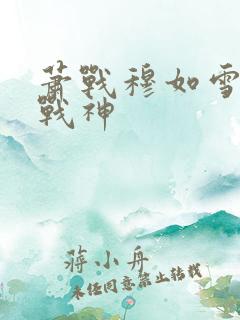 蕭戰穆如雪
戰神
蔣小舟
未經同意禁止轉載